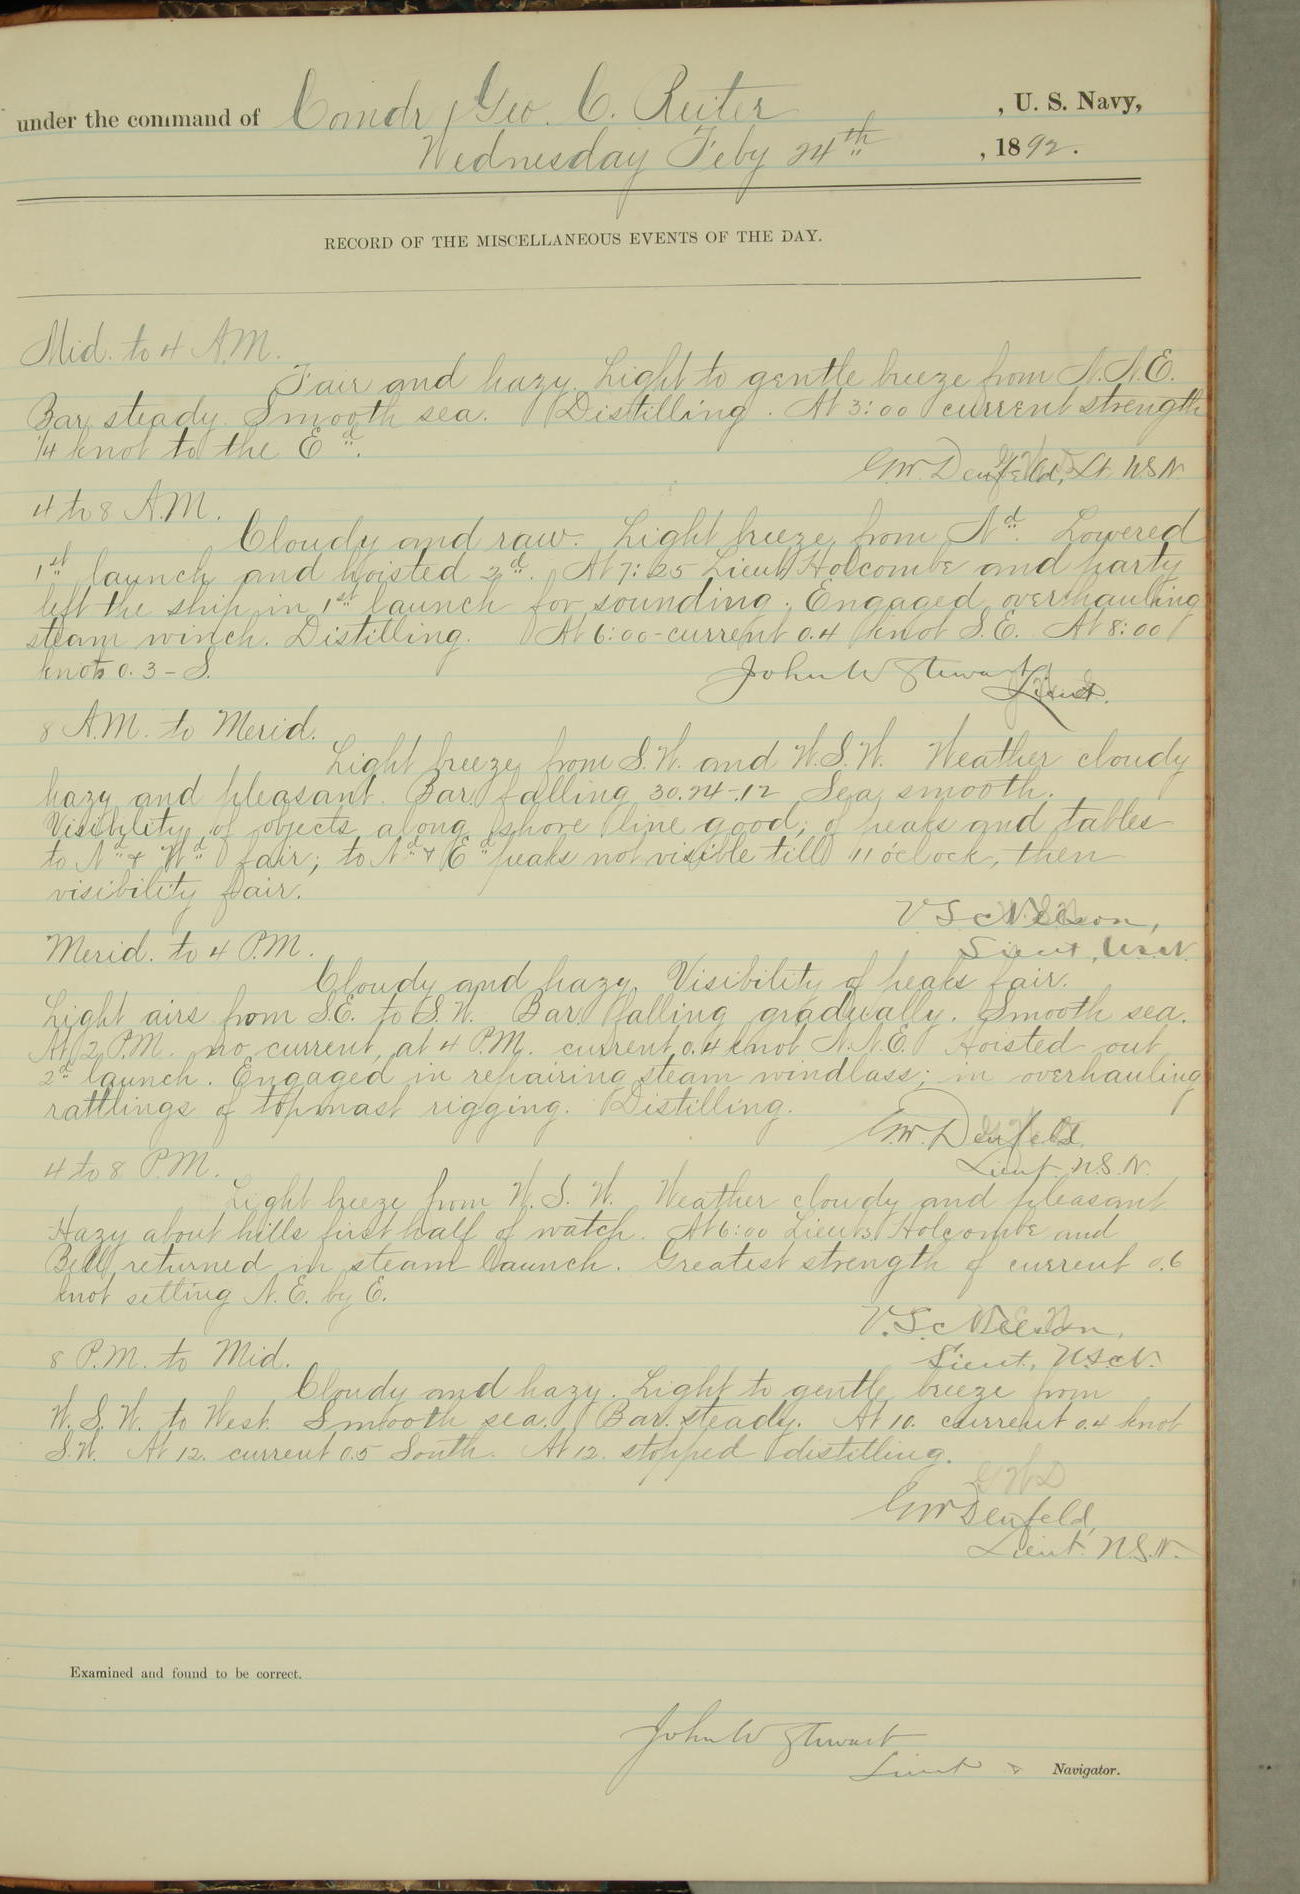 under the command of Comdr Geo. C. Reiter, U. S. Navy,
Wednesday Feby 24th, 1892.
RECORD OF THE MISCELLANEOUS EVENTS OF THE DAY.
Mid. to 4 A.M.
Fair and hazy. Light to gentle breeze from N.N.E.
Bar. steady. Smooth sea. Distilling. At 3:00 current strength
1/4 knot to the Ed.
G.W. Denfeld, Lt. U.S.N.
4 to 8 A.M.
Cloudy and raw. Light breeze from Nd. Lowered
1st launch and hoisted 2d. At 7:25 Lieut Holcombe and party
left the ship in 1st launch for sounding. Engaged overhauling
steam winch. Distilling. At 6:00 - current 0.4 knot S.E. At 8:00
knots 0.3 - S.
John W Stewart
Lieut.
8 A.M. to Merid.
Light breeze from S.W. and W.S.W. Weather cloudy
hazy and pleasant. Bar. falling 30.24-.12 Sea smooth.
Visibility of objects along shore line good; of peaks and tables
to Nd & Wd fair; to Nd & Ed peaks not visible till 11 o'clock, then
visibility fair.
V. S. Nelson,
Lieut, U.S.N.
Merid. to 4 P.M.
Cloudy and hazy. Visibility of peaks fair.
Light airs from S.E. to S.W. Bar. falling gradually. Smooth sea.
At 2 P.M. no current, at 4 P.M. current 0.4 knot N.N.E. Hoisted out
2d launch. Engaged in repairing steam windlass; in overhauling
rattlings of topmast rigging. Distilling.
G.W. Denfeld.
Lieut. U.S.N.
4 to 8 P.M.
Light breeze from W.S.W. Weather cloudy and pleasant
Hazy about hills first half of watch. At 6:00 Lieuts Holcombe and
Bell returned in steam launch. Greatest strength of current 0.6
knot setting N.E. by E.
V. S. Nelson,
Lieut, U.S.N.
8 P.M. to Mid.
Cloudy and hazy. Light to gentle breeze from
W.S.W. to West. Smooth sea. Bar. steady. At 10. current 0.4 knot
S.W. At 12. current 0.5 South. At 12. stopped distilling.
G W D
G W Denfeld,
Lieut. U.S.N.
Examined and found to be correct.
John W Stewart
Lieut & Navigator.